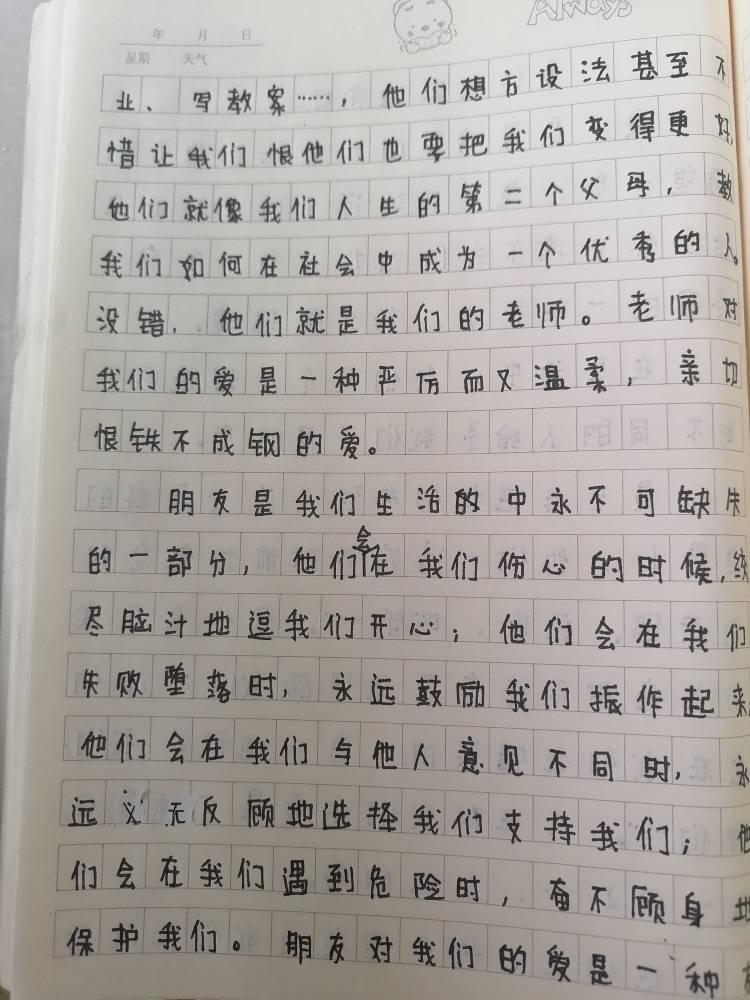 Always
年 月 日
星期 天气
业、写教案……，他们想方设法甚至不
惜让我们恨他们也要把我们变得更好，
他们就像我们人生的第二个父母，教
我们如何在社会中成为一个优秀的人。
没错，他们就是我们的老师。老师对
我们的爱是一种严厉而又温柔，亲切
恨铁不成钢的爱。
朋友是我们生活的中永不可缺失
的一部分，他们会在我们伤心的时候，绞
尽脑汁地逗我们开心；他们会在我们
失败堕落时，永远鼓励我们振作起来
他们会在我们与他人意见不同时，永
远义无反顾地选择我们支持我们；他
们会在我们遇到危险时，奋不顾身地
保护我们。朋友对我们的爱是一种